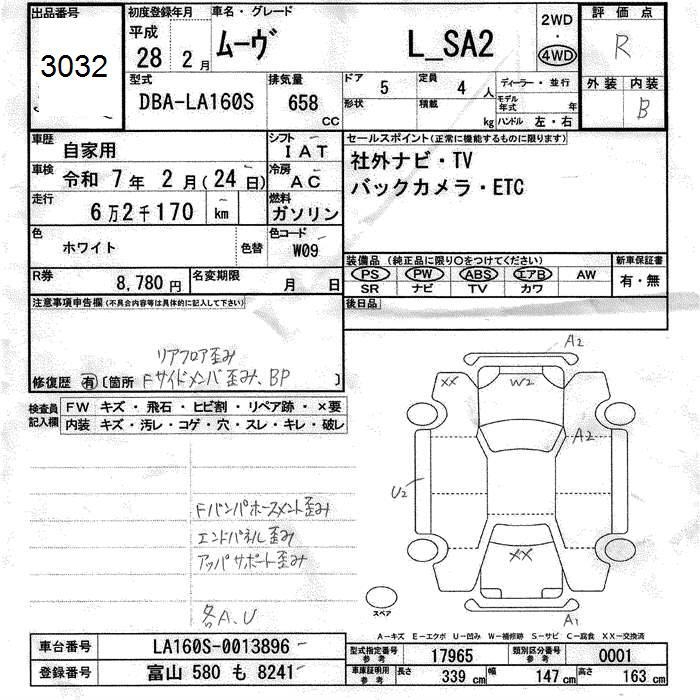 出品番号
3032
初度登録年月
平成
28 2月
車名・グレード
ムーヴ L_SA2
2WD
・
4WD
評価点
R
外装 内装
B
型式
DBA-LA160S
排気量
658
CC
ドア
5
形状
定員
4人
積載
kg
ディーラー・並行
モデル年式 年
ハンドル 左・右
車歴
自家用
シフト
IAT
車検
令和 7年 2月(24日)
冷房
AC
走行
6万2千170 km
燃料
ガソリン
色
ホワイト
色替
色コード
W09
R券
8,780円
名変期限
月 日
セールスポイント(正常に機能するものに限ります)
社外ナビ・TV
バックカメラ・ETC
装備品(純正品に限り○をつけてください)
PS PW ABS エアB AW
SR ナビ TV カワ
新車保証書
有・無
後日品
注意事項申告欄(不具合内容等は具体的に記入して下さい)
リアフロア歪み
修復歴 有 〔箇所 Fサイドメンバ歪み、BP 〕
検査員記入欄
FW キズ・飛石・ヒビ割・リペア跡・×要
内装 キズ・汚レ・コゲ・穴・スレ・キレ・破レ
Fバンパホースメント歪み
エンドパネル歪み
アッパサポート歪み
各A、U
A2
XX
W2
A2
U2
XX
A1
スペア
A−キズ E−エクボ U−凹み W−補修跡 S−サビ C−腐食 XX−交換済
車台番号
LA160S-0013896
登録番号
富山 580 も 8241
型式指定番号
参考
17965
類別区分番号
参考
0001
車庫証明用
参考
長さ 339 cm 幅 147 cm 高さ 163 cm